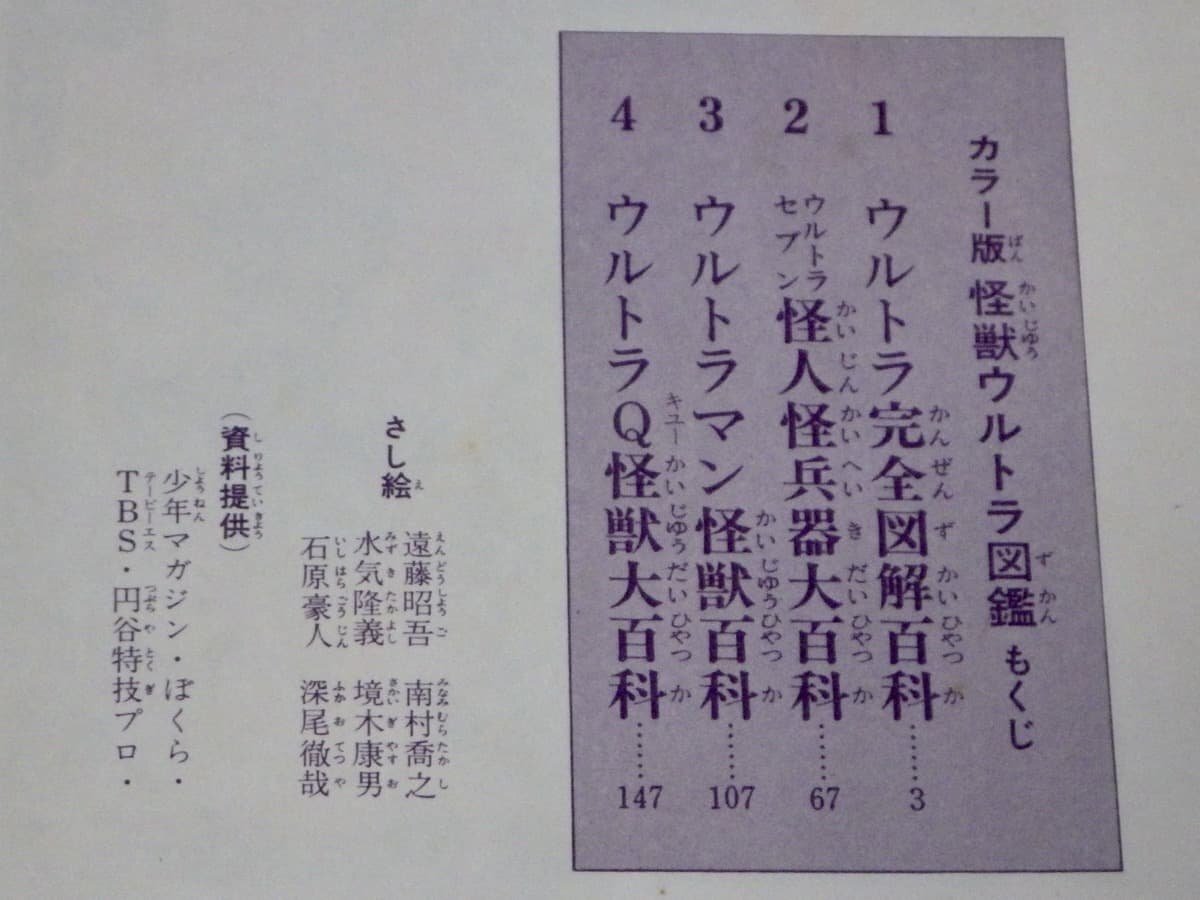 カラー版 怪獣ウルトラ図鑑 もくじ
1 ウルトラ完全図解百科……3
2 ウルトラセブン怪人怪兵器大百科……67
3 ウルトラマン怪獣百科……107
4 ウルトラQ怪獣大百科……147
さし絵
遠藤昭吾 南村喬之
水気隆義 境木康男
石原豪人 深尾徹哉
(資料提供)
少年マガジン・ぼくら・
TBS・円谷特技プロ・